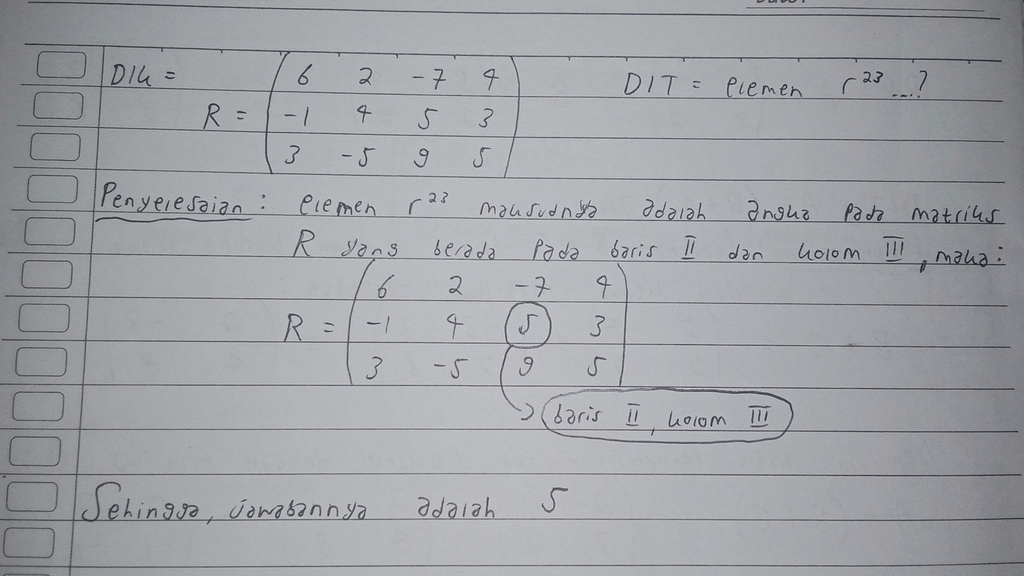 DIK =
6 2 -7 4
R = -1 4 5 3
3 -5 9 5
DIT = elemen r²³ ...?
Penyelesaian : elemen r²³ maksudnya adalah angka pada matriks
R yang berada pada baris II dan kolom III, maka :
6 2 -7 4
R = -1 4 5 3
3 -5 9 5
baris II, kolom III
Sehingga, jawabannya adalah 5